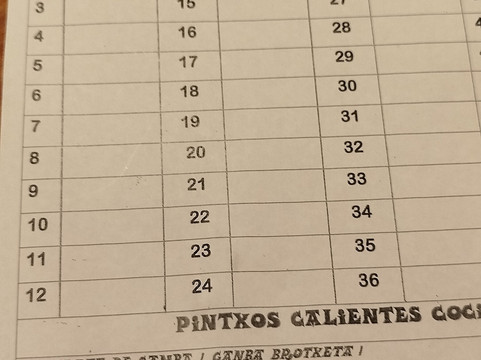 3 15 27
4 16 28
5 17 29
6 18 30
7 19 31
8 20 32
9 21 33
10 22 34
11 23 35
12 24 36
PINTXOS CALIENTES
GANBA BROTXETA /